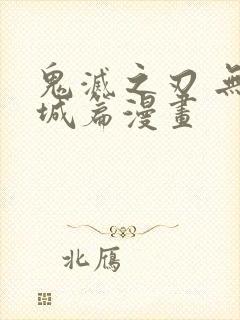 鬼滅之刃 無
城篇漫畫
北鴈